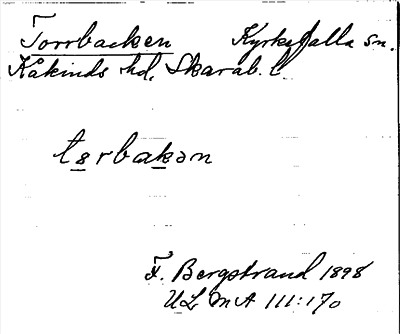 Torrbacken Kyrkefalla sn.
Kåkinds hd, Skarab. l.
tərbakən
F. Bergstrand 1898
ULMA 111:170